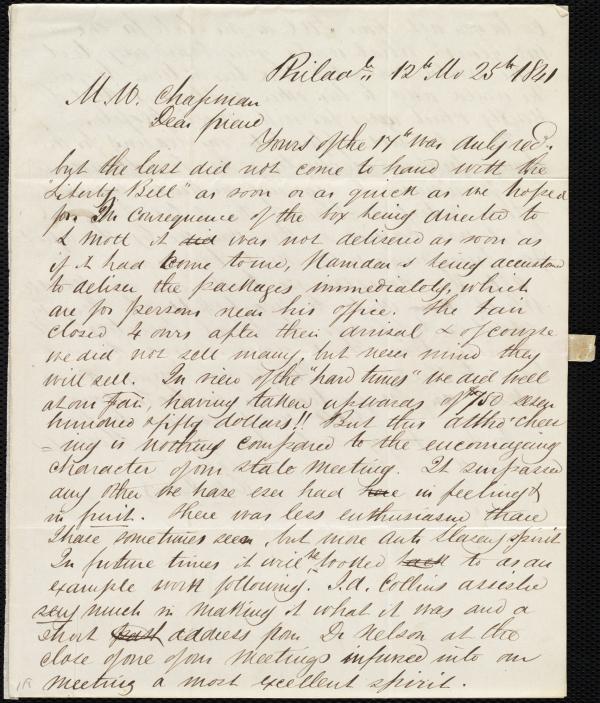 Philad. 12th Mo 25th 1841
M. W. Chapman
Dear friend
Yours of the 17th was duly recd.
but the last did not come to hand with the
"Liberty Bell" as soon or as quick as we hoped
for In Consequence of the box being directed to
L Mott it did was not delivered as soon as
if it had come to me, being accustomed
to deliver the packages immediately, which
are for persons near his office. The Fair
closed 4 ours after their arrival & of course
we did not sell many, but never mind they
will sell. In view of the "hard times" we did well
at our Fair, having taken upwards of $750 seven
hundred & fifty dollars!! But this altho' cheer
=ing is nothing compared to the encouraging
character of our state meeting. It surpassed
any other we have ever had here in feeling &
in spirit. There was less enthusiasm than
I have sometimes seen, but more Anti Slavery spirit
In future times it will be looked back to as an
example worth following. J.A. Collins assisted
very much in making it what it was and a
short address from Dr Nelson at the
close of one of our meetings infused into our
meeting a most excellent spirit.